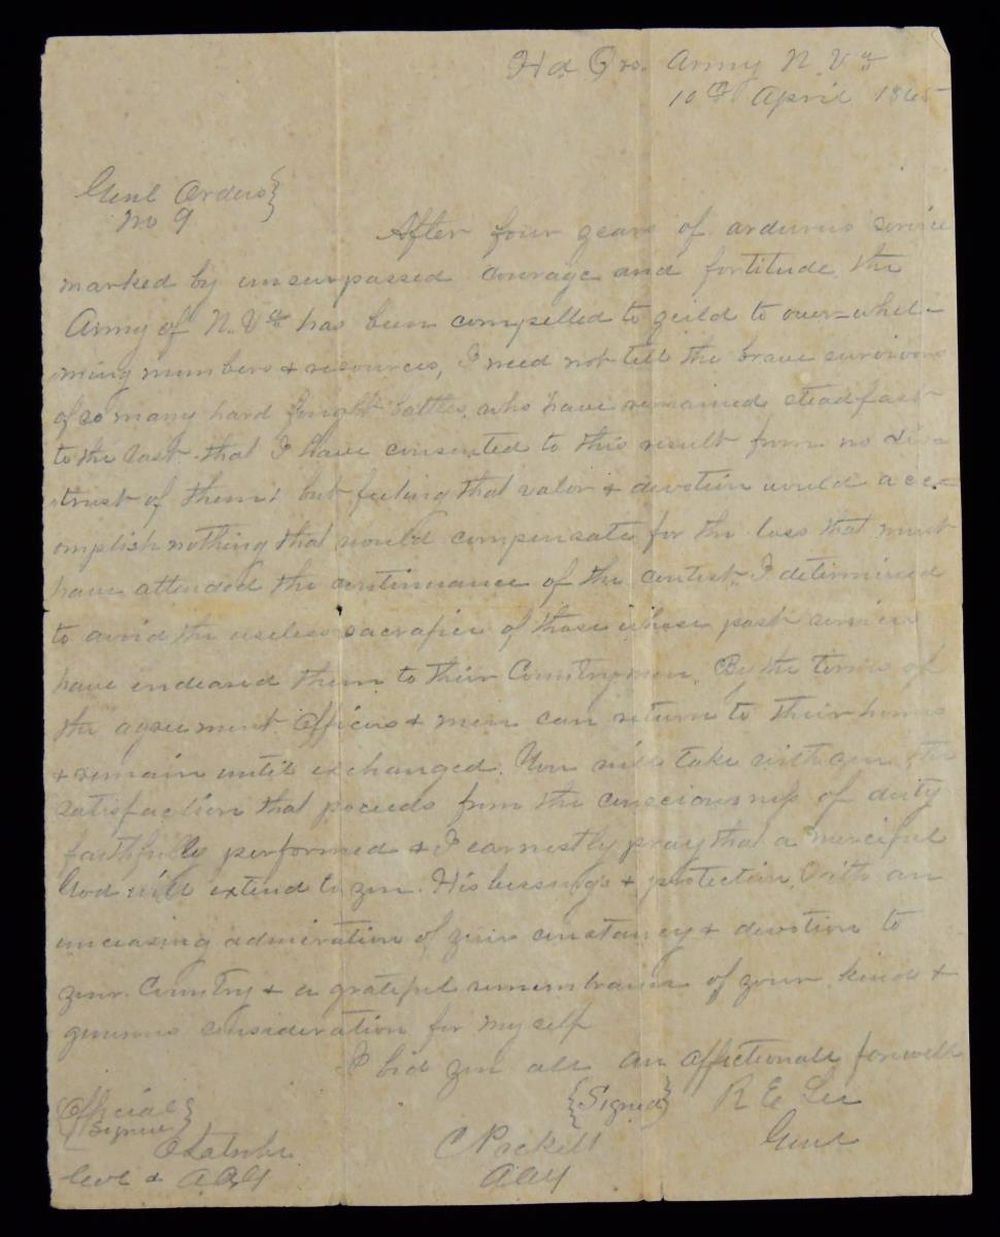 Hd Qrs. Army N. Va
10th April 1865
Genl Orders }
No 9
After four years of arduous service
marked by unsurpassed courage and fortitude, the
Army of N. Va has been compelled to yeild to over-whel-
ming numbers & resources, I need not tell the brave survivors
of so many hard fought battles, who have remained steadfast
to the last that I have consented to this result from no dis
trust of them; but feeling that valor & devotion would acc-
omplish nothing that would compensate for the loss that must
have attended the continuance of the contest. I determined
to avoid the useless sacrafice of those whose past services
have endeared them to their Countrymen. By the terms of
the agreement Officers & men can return to their homes
& remain until exchanged. You will take with you the
satisfaction that proceeds from the consciousness of duty
faithfully performed & I earnestly pray that a merciful
God will extend to you His blessings & protection, With an
unceasing admiration of your constancy & devotion to
your Country & a grateful remembrance of your kind &
generous consideration for my self
I bid you all an affectionate farwell
{Signed} R E Lee
Genl
Official }
Signed }
O Latrobe
C Pickett
AAG
& AAG